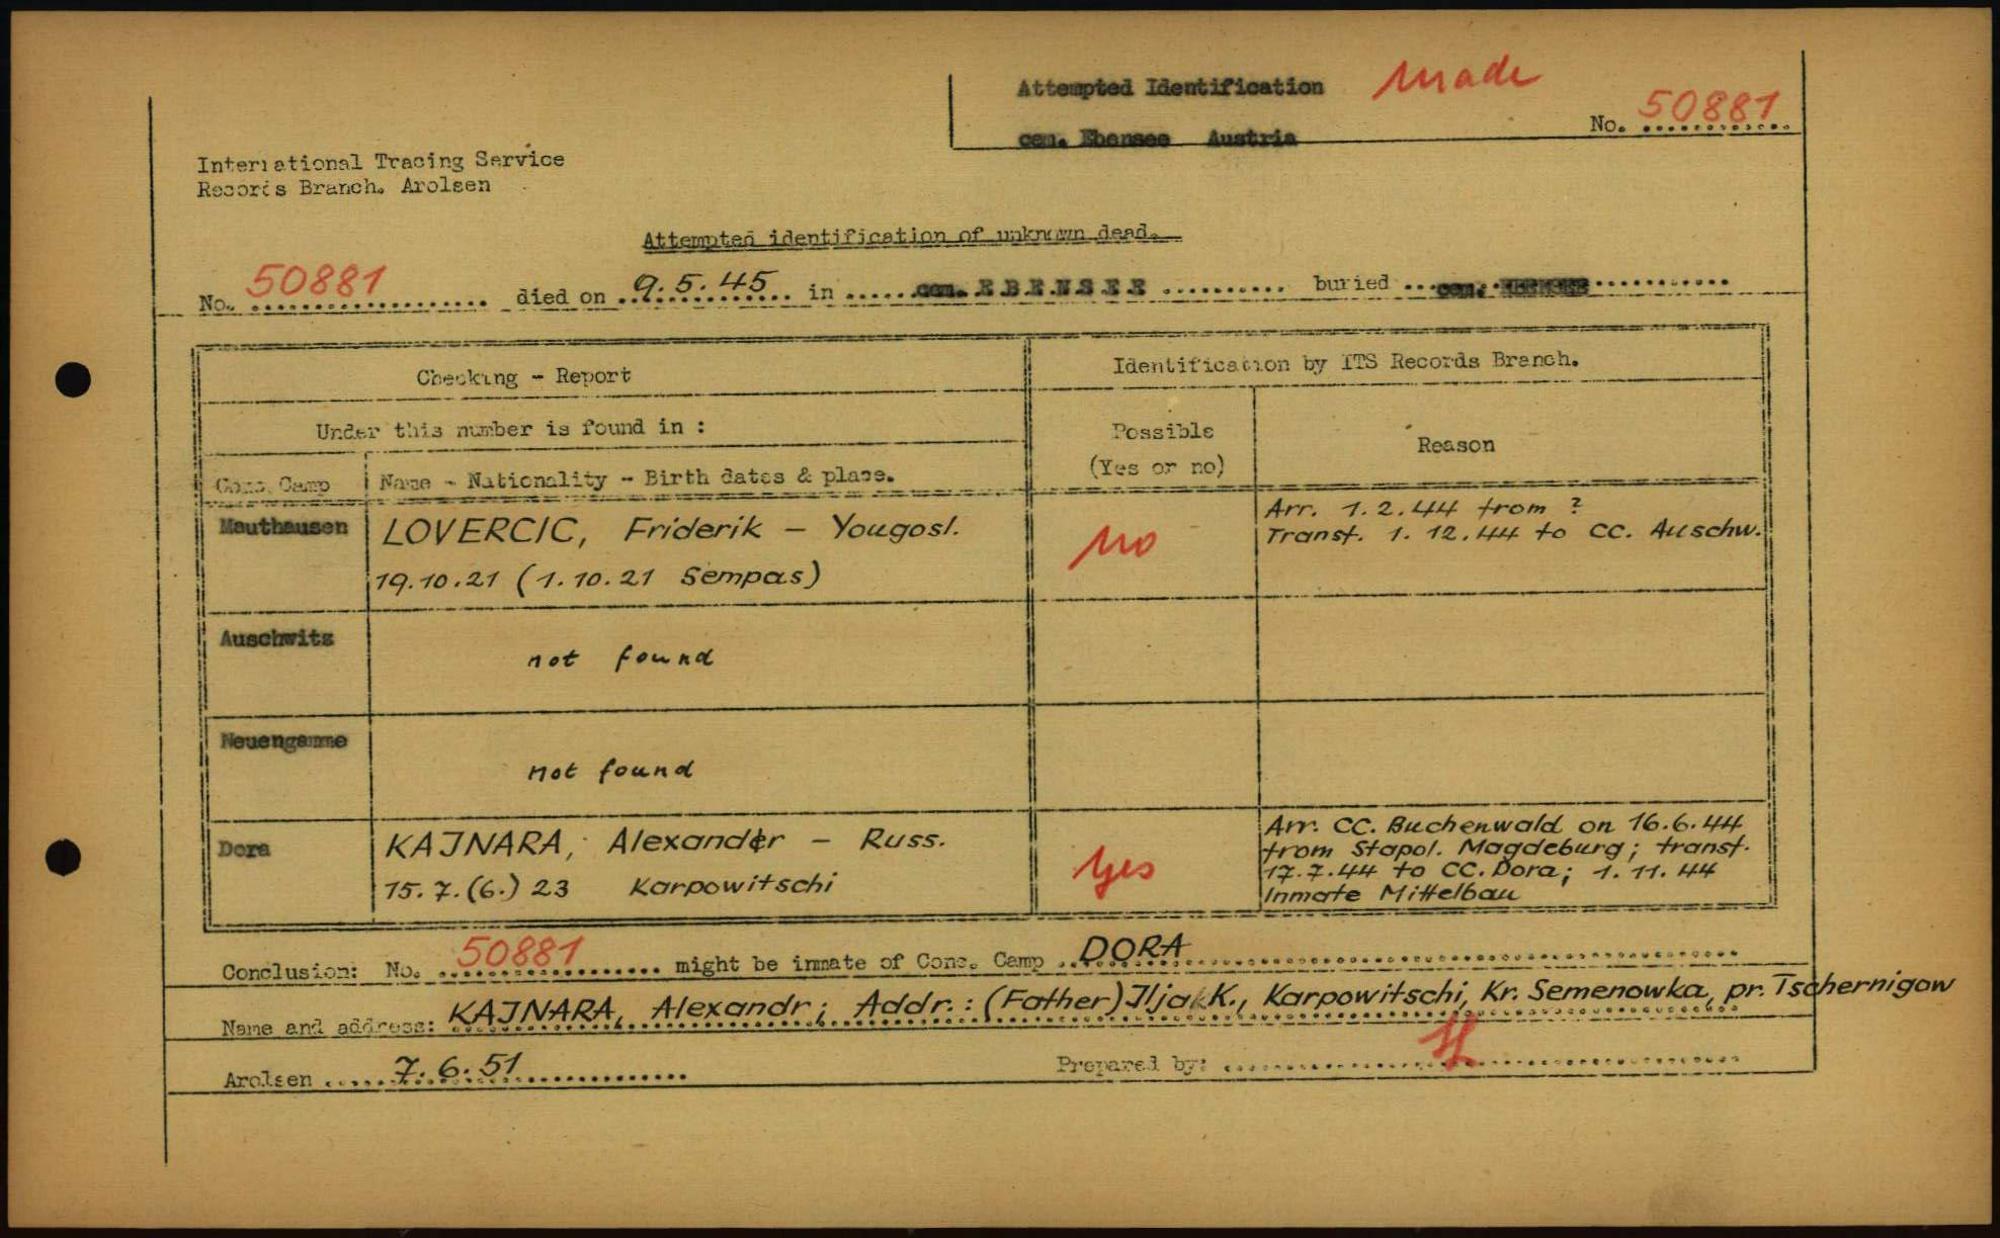 Attempted Identification made
cem. Ebensee Austria
No. 50881
International Tracing Service
Records Branch. Arolsen
Attempted identification of unknown dead.
No. 50881 died on 9.5.45 in cem. EBENSEE buried cem. EBENSEE
Checking - Report
Identification by ITS Records Branch.
Under this number is found in :
Possible
(Yes or no)
Reason
Conc. Camp
Name - Nationality - Birth dates & place.
Mauthausen
LOVERCIC, Friderik - Yougosl.
19.10.21 (1.10.21 Sempas)
no
Arr. 1.2.44 from ?
Transf. 1.12.44 to CC. Auschw.
Auschwitz
not found
Neuengamme
not found
Dora
KAJNARA, Alexander - Russ.
15.7.(6.) 23 Karpowitschi
yes
Arr. CC. Buchenwald on 16.6.44
from Stapol. Magdeburg; transf.
17.7.44 to CC. Dora; 1.11.44
Inmate Mittelbau
Conclusion: No. 50881 might be inmate of Conc. Camp DORA
Name and address: KAJNARA, Alexandr; Addr.: (Father) Ilja K., Karpowitschi, Kr. Semenowka, pr. Tschernigow
Arolsen 7.6.51
Prepared by: